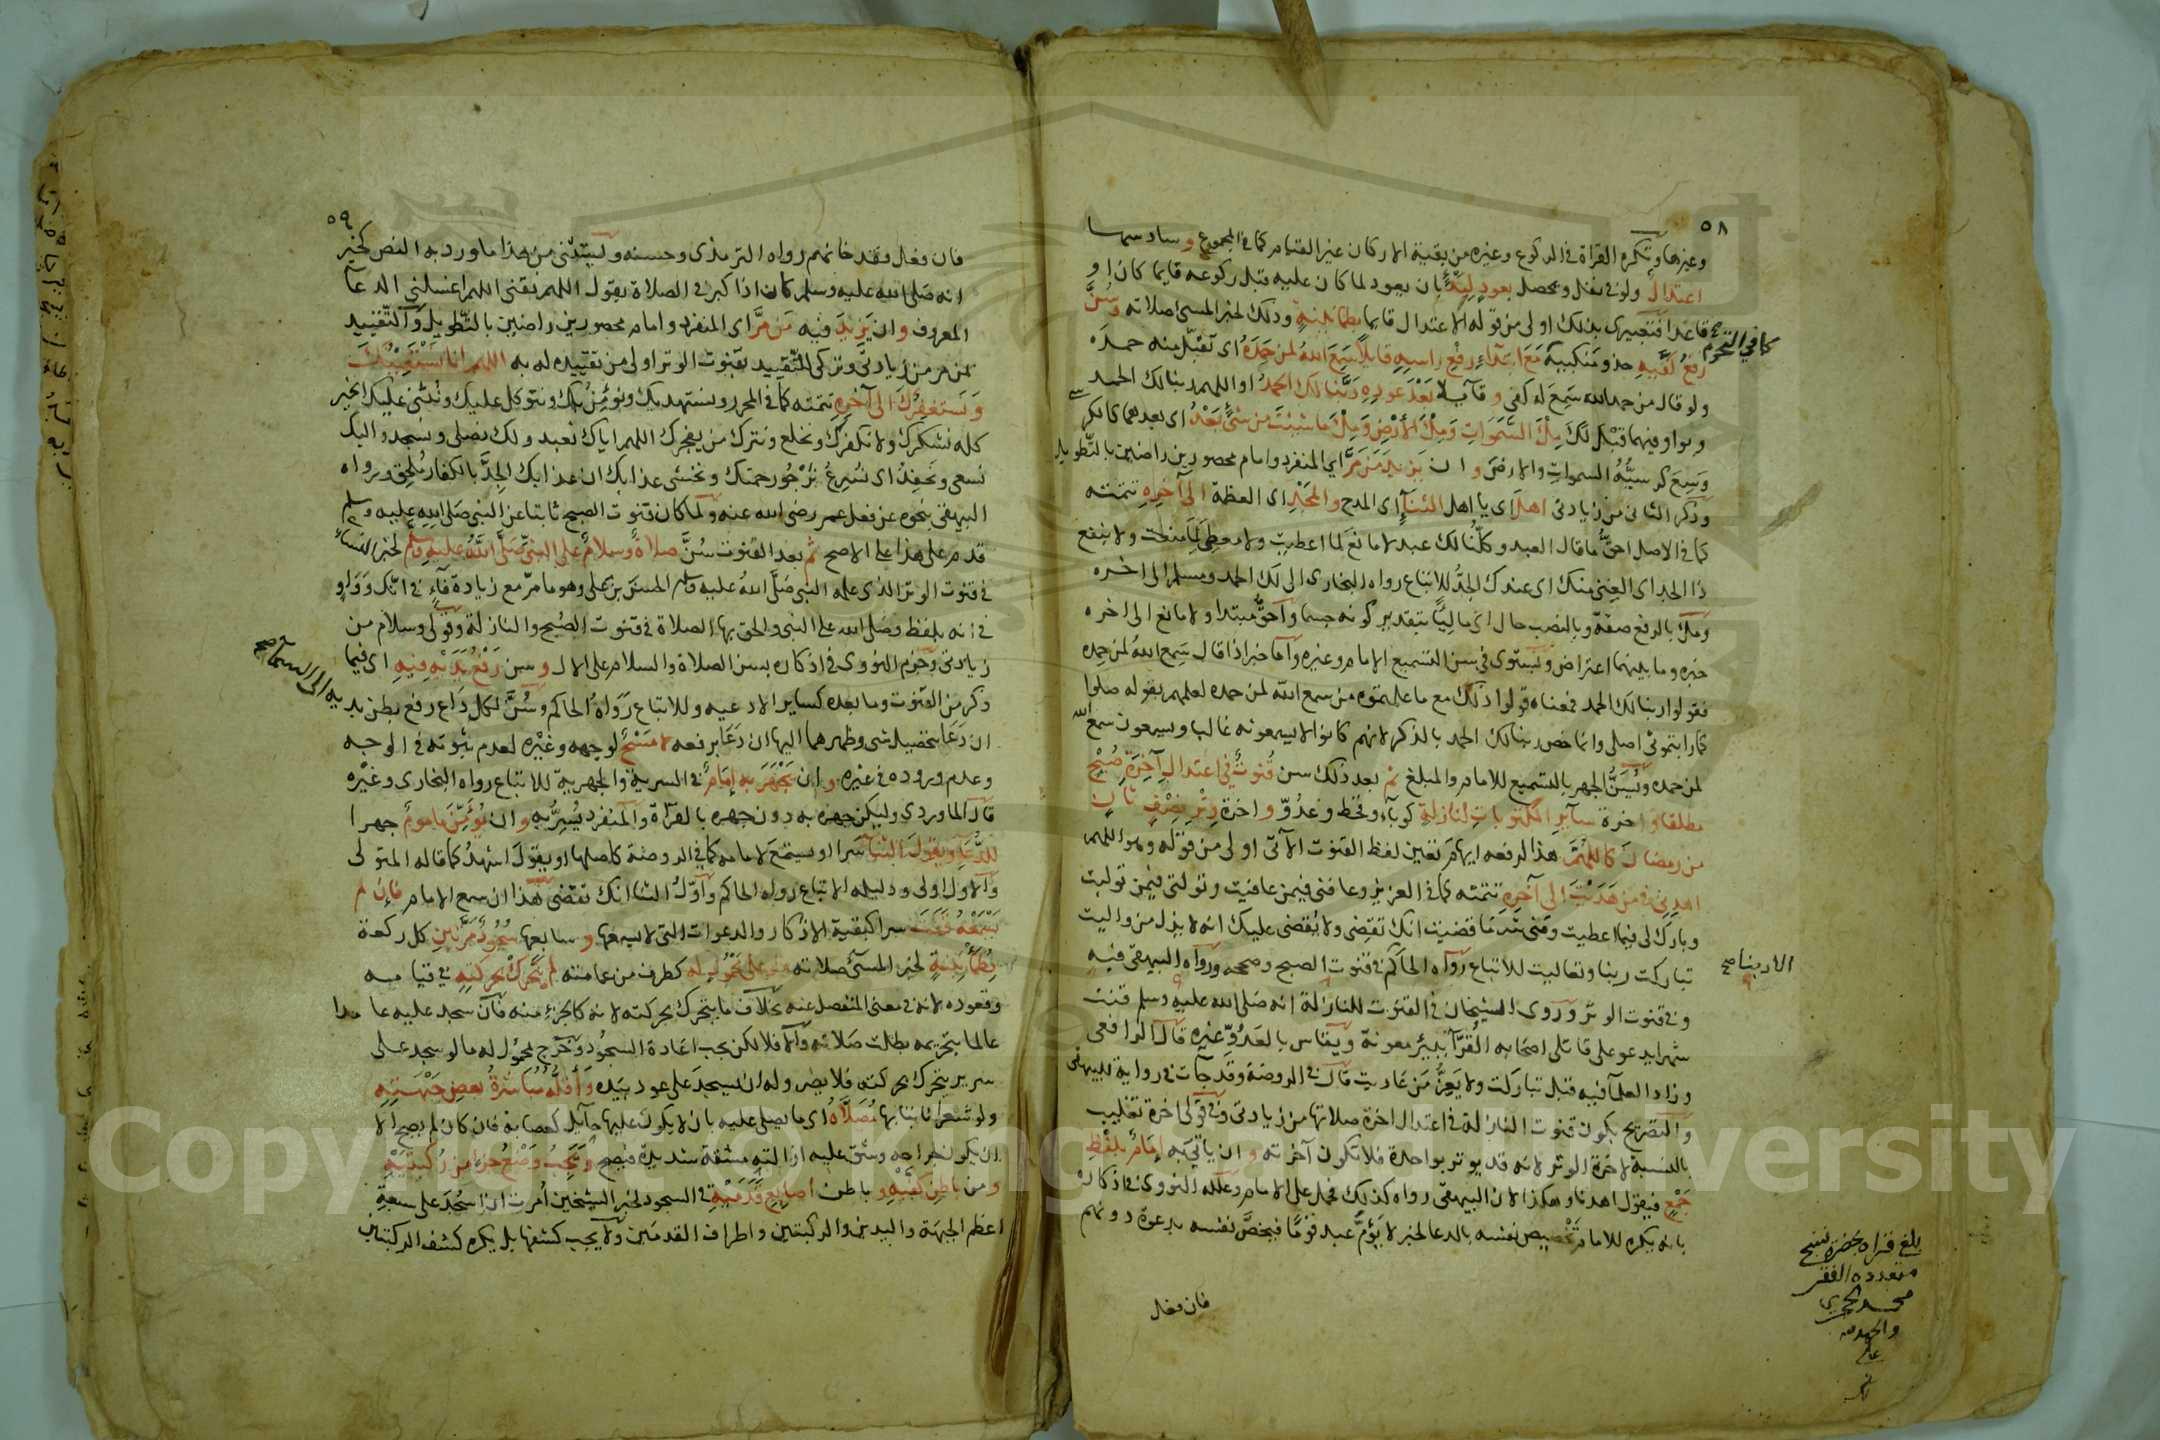 ٥٨
وغيرها وتكره القراة في الركوع وغيره من بقية الاركان غير القيام كما في المجموع و سادسها
اعتدال ولو في نفل ويحصل بعود لبدء بان يعود لما كان عليه قبل ركوعه قايما كان او
قاعدا فتعبيري بذلك اولى من قوله الاعتدال قايما بطمانينة وذلك لخبر المسئ صلاته وسن
رفع كفيه حذو منكبيه مع ابتداء رفع راسه قايلا سمع الله لمن حمده اي تقبل منه حمده
كما في التحرم صح
ولو قال من حمد الله سمع له كفى و قايلا بعد عوده ربنا لك الحمد او اللهم ربنا لك الحمد
وبواو فيهما قبل لك ملء السموات وملء الأرض وملء ما شئت من شئ بعد اي بعدهما كالكرسي
وسع كرسيه السموات والارض و ان يزيد من مر اي المنفرد وامام محصورين راضين بالتطويل
وذكر الثاني من زيادتي اهل اي يا اهل الثناء اي المدح والمجد اي العظمة الى آخره تتمته
كما في الاصل احق ما قال العبد وكلنا لك عبد لا مانع لما اعطيت ولا معطي لما منعت ولا ينفع
ذا الجد اي الغنى منك اي عندك الجد للاتباع رواه البخاري الى لك الحمد ومسلم الى اخره
وملء بالرفع صفة وبالنصب حال اي ماليًا بتقدير كونه جسما وأحق مبتدا ولا مانع الى اخره
خبره وما بينهما اعتراض ويستوي في سن التسميع الامام وغيره وأما خبر اذا قال سمع الله لمن حمده
فقولوا ربنا لك الحمد فمعناه قولوا ذلك مع ما علمتموه من سمع الله لمن حمده لعلمهم بقوله صلوا
كما رايتموني اصلي وانما خص ربنا لك الحمد بالذكر لانهم كانوا لا يسمعونه غالبا ويسمعون سمع الله
لمن حمده ويسن الجهر بالتسميع للامام والمبلغ ثم بعد ذلك سن قنوت في اعتدال آخرة صبح
مطلقا و اخرة سائر المكتوبات لنازلة كوباء وقحط وعدو و اخرة وتر نصف ثان
من رمضان كاللهم هذا لرفعه ايهام تعين لفظ القنوت الآتي اولى من قوله وهو اللهم
اهدني فيمن هديت الى آخره تتمته كما في العزيز وعافني فيمن عافيت وتولني فيمن توليت
وبارك لي فيما اعطيت وقني شر ما قضيت انك تقضي ولا يقضى عليك انه لا يذل من واليت
تباركت ربنا وتعاليت للاتباع رواه الحاكم في قنوت الصبح وصححه ورواه البيهقي فيه
الا ربنا صح
وفي قنوت الوتر وروى الشيخان في القنوت للنازلة انه صلى الله عليه وسلم قنت
شهرا يدعو على قاتلي اصحابه القراء ببئر معونة ويقاس بالعدو غيره قال الرافعي
وزاد العلما فيه قبل تباركت ولا يعز من عاديت قال في الروضة وقد جآت في رواية للبيهقي
والتصريح بكون قنوت النازلة في اعتدال اخرة صلاتها من زيادتي وفي قولي اخرة تغليب
بالنسبة لاخرة الوتر لانه قد يوتر بواحدة فلا يكون آخرته و ان ياتي به امام بلفظ
جمع فيقول اهدنا وهكذا لان البيهقي رواه كذلك فحمل على الامام وعلله النووي في اذكاره
بانه يكره للامام تخصيص نفسه بالدعا لخبر لا يؤم عبد قومًا فيخص نفسه بدعوة دونهم
فان فعل
بلغ قراه بحضرة نسخ
متعدده الفقير
محمد
والحمد لله
٥٩
فان فعل فقد خانهم رواه الترمذي وحسنه ويستثنى من هذا ما ورد به النص كخبر
انه صلى الله عليه وسلم كان اذا كبر في الصلاة يقول اللهم نقني اللهم اغسلني الدعا
المعروف و ان يزيد فيه من مر اي المنفرد وامام محصورين راضين بالتطويل والتقييد
بمن مر من زيادتي وتركي التقييد بقنوت الوتر اولى من تقييده له به اللهم انا نستعينك
ونستغفرك الى آخره تتمته كما في المحرر ونستهديك ونؤمن بك ونتوكل عليك ونثني عليك الخير
كله نشكرك ولا نكفرك ونخلع ونترك من يفجرك اللهم اياك نعبد ولك نصلي ونسجد واليك
نسعى ونحفد اي نسرع نرجو رحمتك ونخشى عذابك ان عذابك الجد بالكفار ملحق ورواه
البيهقي بنحوه عن فعل عمر رضي الله عنه ولما كان قنوت الصبح ثابتا عن النبي صلى الله عليه وسلم
قدم على هذا على الاصح ثم بعد القنوت سن صلاة وسلام على النبي صلى الله عليه وسلم لخبر النسائي
في قنوت الوتر الذي علمه النبي صلى الله عليه وسلم الحسن بن علي وهو ما مر مع زيادة فاء في انك وواو
في انه بلفظ وصلى الله على النبي والحق بها الصلاة في قنوت الصبح والنازلة وقولي وسلام من
زيادتي وجزم النووي في اذكاره بسن الصلاة والسلام على الال و سن رفع يديه فيه اي فيما
ذكر من القنوت وما بعده كساير الادعيه وللاتباع رواه الحاكم وسن لكل داع رفع بطن يديه الى السماء صح
ان دعا بتحصيل شي وظهرهما اليها ان دعا برفعه لا مسح لوجهه وغيره لعدم ثبوته في الوجه
وعدم وروده في غيره و ان يجهر به إمام في السرية والجهرية للاتباع رواه البخاري وغيره
قال الماوردي وليكن جهره به دون جهره بالقراة والمنفرد يسر به و ان يؤمن ماموم جهرا
للدعاء ويقول الثناء سرا او يستمع لامامه كما في الروضة كاصلها او يقول اشهد كما قاله المتولي
والاول اولى ودليله الاتباع رواه الحاكم وأول الثنا انك تقضي هذا ان سمع الامام فان لم
يسمعه قنت سرا كبقية الاذكار والدعوات التي لا يسمعها و سابعها سجود مرتين كل ركعة
بطمأنينة لخبر المسئ صلاته ولو على محمول له كطرف من عمامته لم يتحرك بحركته في قيامه
وقعوده لانه في معنى المنفصل عنه بخلاف ما يتحرك بحركته لانه كالجزء منه فان سجد عليه عامدا
عالما بتحريمه بطلت صلاته والا فلا لكن يجب اعادة السجود وخرج بمحمول له ما لو سجد على
سرير يتحرك بحركته فلا يضر وله ان يسجد على عود بيده وأقله مباشرة بعض جبهته
ولو شعرا نابتا بها مصلاه اي ما يصلي عليه بان لا يكون عليها حايل كعصابة فان كان لم يصح الا
ان يكون لجراحه وشق عليه ازالته مشقة شديدة فيصح ويجب وضع جزء من ركبتيه
و من باطن كفيه و باطن اصابع قدميه في السجود لخبر الشيخين أمرت ان اسجد على سبعة
اعظم الجبهة واليدين والركبتين واطراف القدمين ولا يجب كشفها بل يكره كشف الركبتين
Copyright © King Saud University